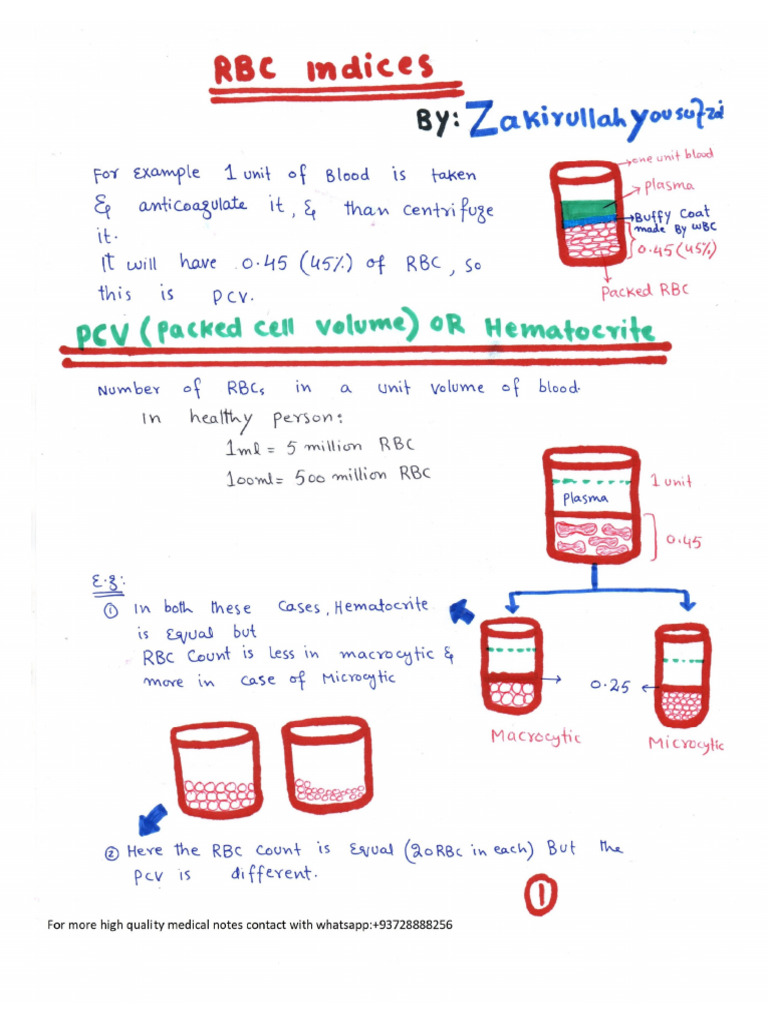 RBC Indices
By: Zakirullah yousufzai
For Example 1 unit of Blood is taken
& anticoagulate it, & than centrifuge
it.
It will have 0.45 (45%) of RBC, so
this is PCV.
one unit blood
plasma
Buffy Coat
made By WBC
0.45 (45%)
Packed RBC
PCV (Packed cell volume) OR Hematocrite
Number of RBCs in a unit volume of blood.
In healthy person:
1ml = 5 million RBC
100ml = 500 million RBC
1 unit
plasma
0.45
E.g:
① In both these cases, Hematocrite
is Equal but
RBC Count is less in macrocytic &
more in case of Microcytic
0.25
Macrocytic
Microcytic
② Here the RBC count is equal (20RBC in each) But the
PCV is different.
1
For more high quality medical notes contact with whatsapp:+93728888256